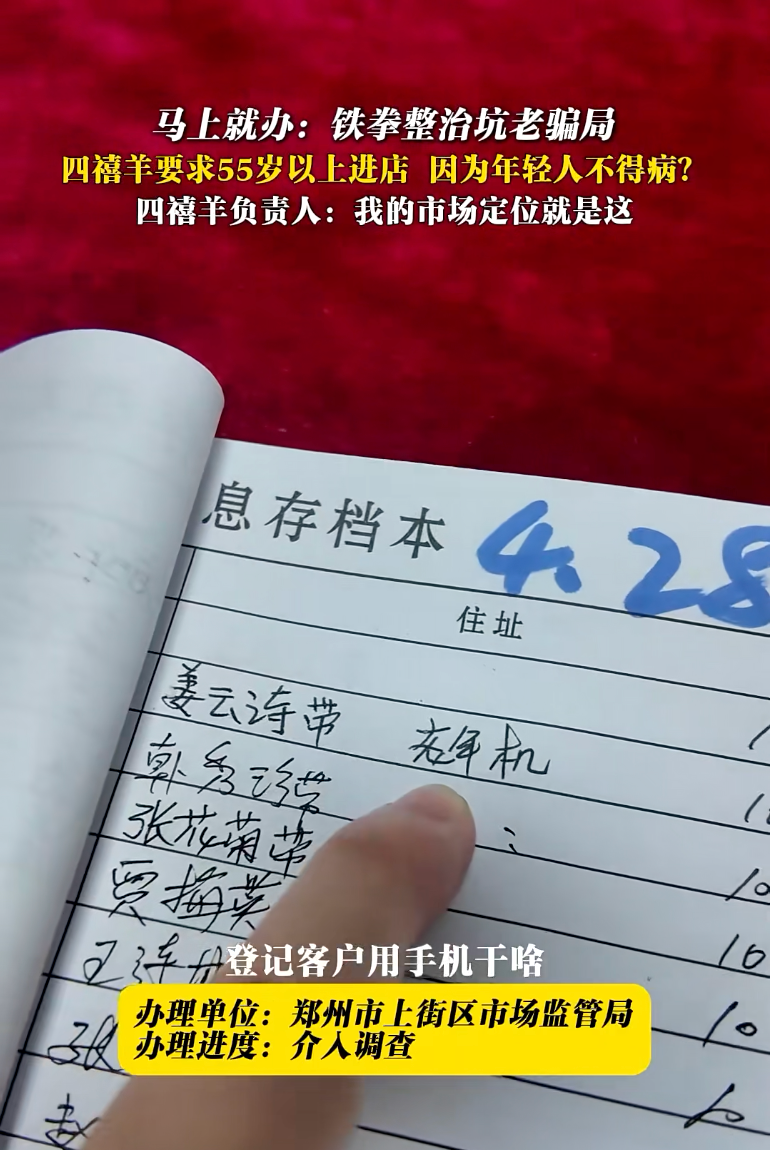 马上就办：铁拳整治坑老骗局
四禧羊要求55岁以上进店 因为年轻人不得病？
四禧羊负责人：我的市场定位就是这
息存档本 4.28
住址
姜云涛带 老年机
韩秀珍带
张花菊带
贾梅英
王
张
赵
10
10
10
登记客户用手机干啥
办理单位：郑州市上街区市场监管局
办理进度：介入调查